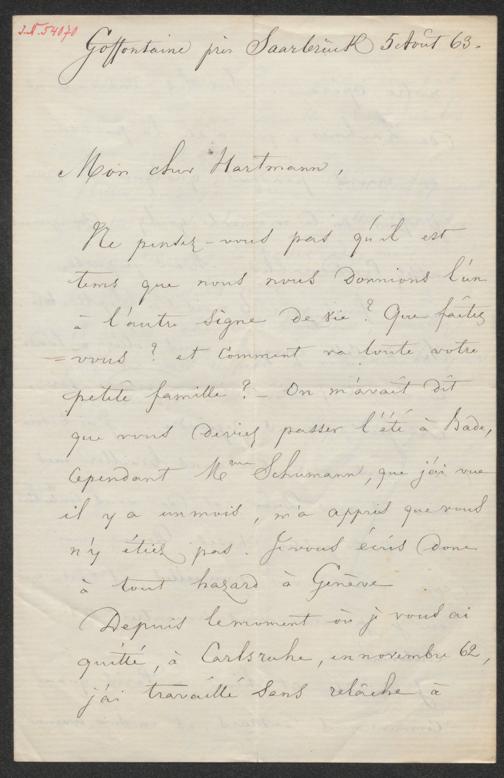 I.N. 54070
Goffontaine près Saarbrück 5 Août 63.
Mon cher Hartmann,
Ne pensez-vous pas qu'il est
tems que nous nous donnions l'un
à l'autre signe de vie? Que faites
=vous? et comment va toute votre
petite famille? – On m'avait dit
que vous deviez passer l'été à Bade,
cependant Mme Schumann, que j'ai vue
il y a un mois, m'a appris que vous
n'y étiez pas. Je vous écris donc
à tout hazard à Genève
Depuis le moment où je vous ai
quitté, à Carlsruhe, en novembre 62,
j'ai travaillé sans relâche à